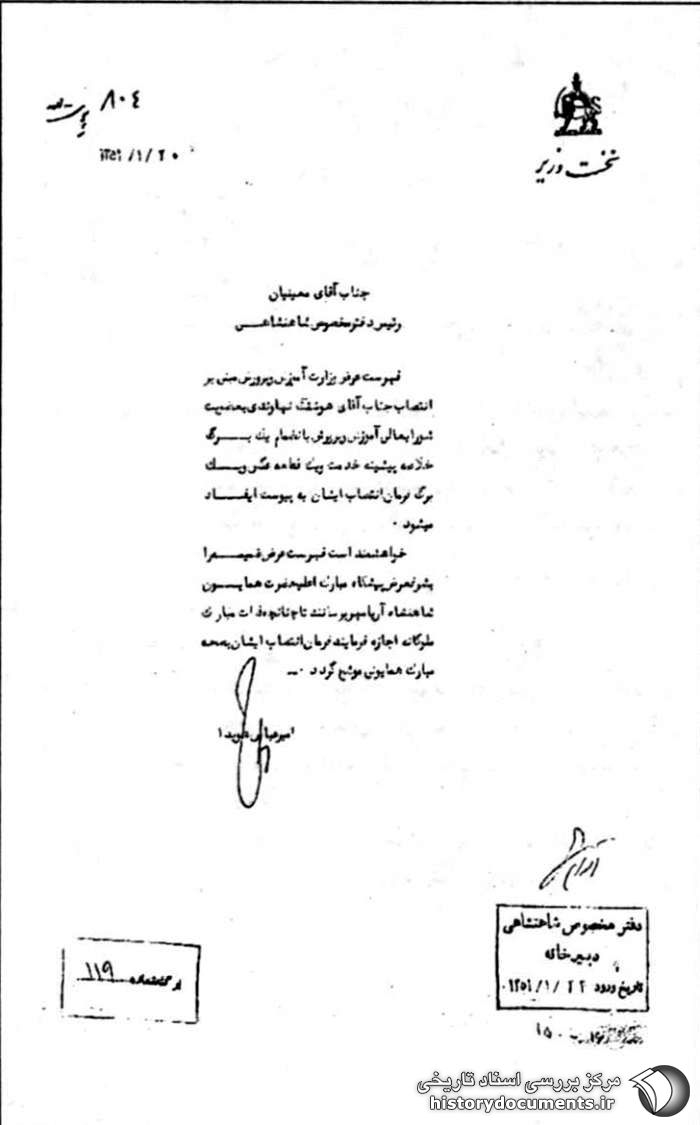 نخست وزیر
۸۰۴
پیوست دارد
۱۳۵۱/۱/۲۰
جناب آقای معینیان
رئیس دفتر مخصوص شاهنشاهی
فهرست عرض وزارت آموزش و پرورش مبنی بر
انتصاب جناب آقای هوشنگ نهاوندی بعضویت
شورایعالی آموزش و پرورش بانضمام یک برگ
خلاصه پیشینه خدمت ویک قطعه عکس ویک
برگ فرمان انتصاب ایشان به پیوست ایفاد
میشود ۰
خواهشمند است فهرست عرض ضمیمه را
بشرفعرض پیشگاه مبارک اعلیحضرت همایون
شاهنشاه آریامهر برسانند تا چنانچه ذات مبارک
ملوکانه اجازه فرمایند فرمان انتصاب ایشان بصحه
مبارک همایونی موشح گردد ۰
امیرعباس هویدا
دفتر مخصوص شاهنشاهی
دبیرخانه
تاریخ ورود ۱۳۵۱/۱/۲۲
۱۵۰
۱۱۹
مرکز بررسی اسناد تاریخی
historydocuments.ir